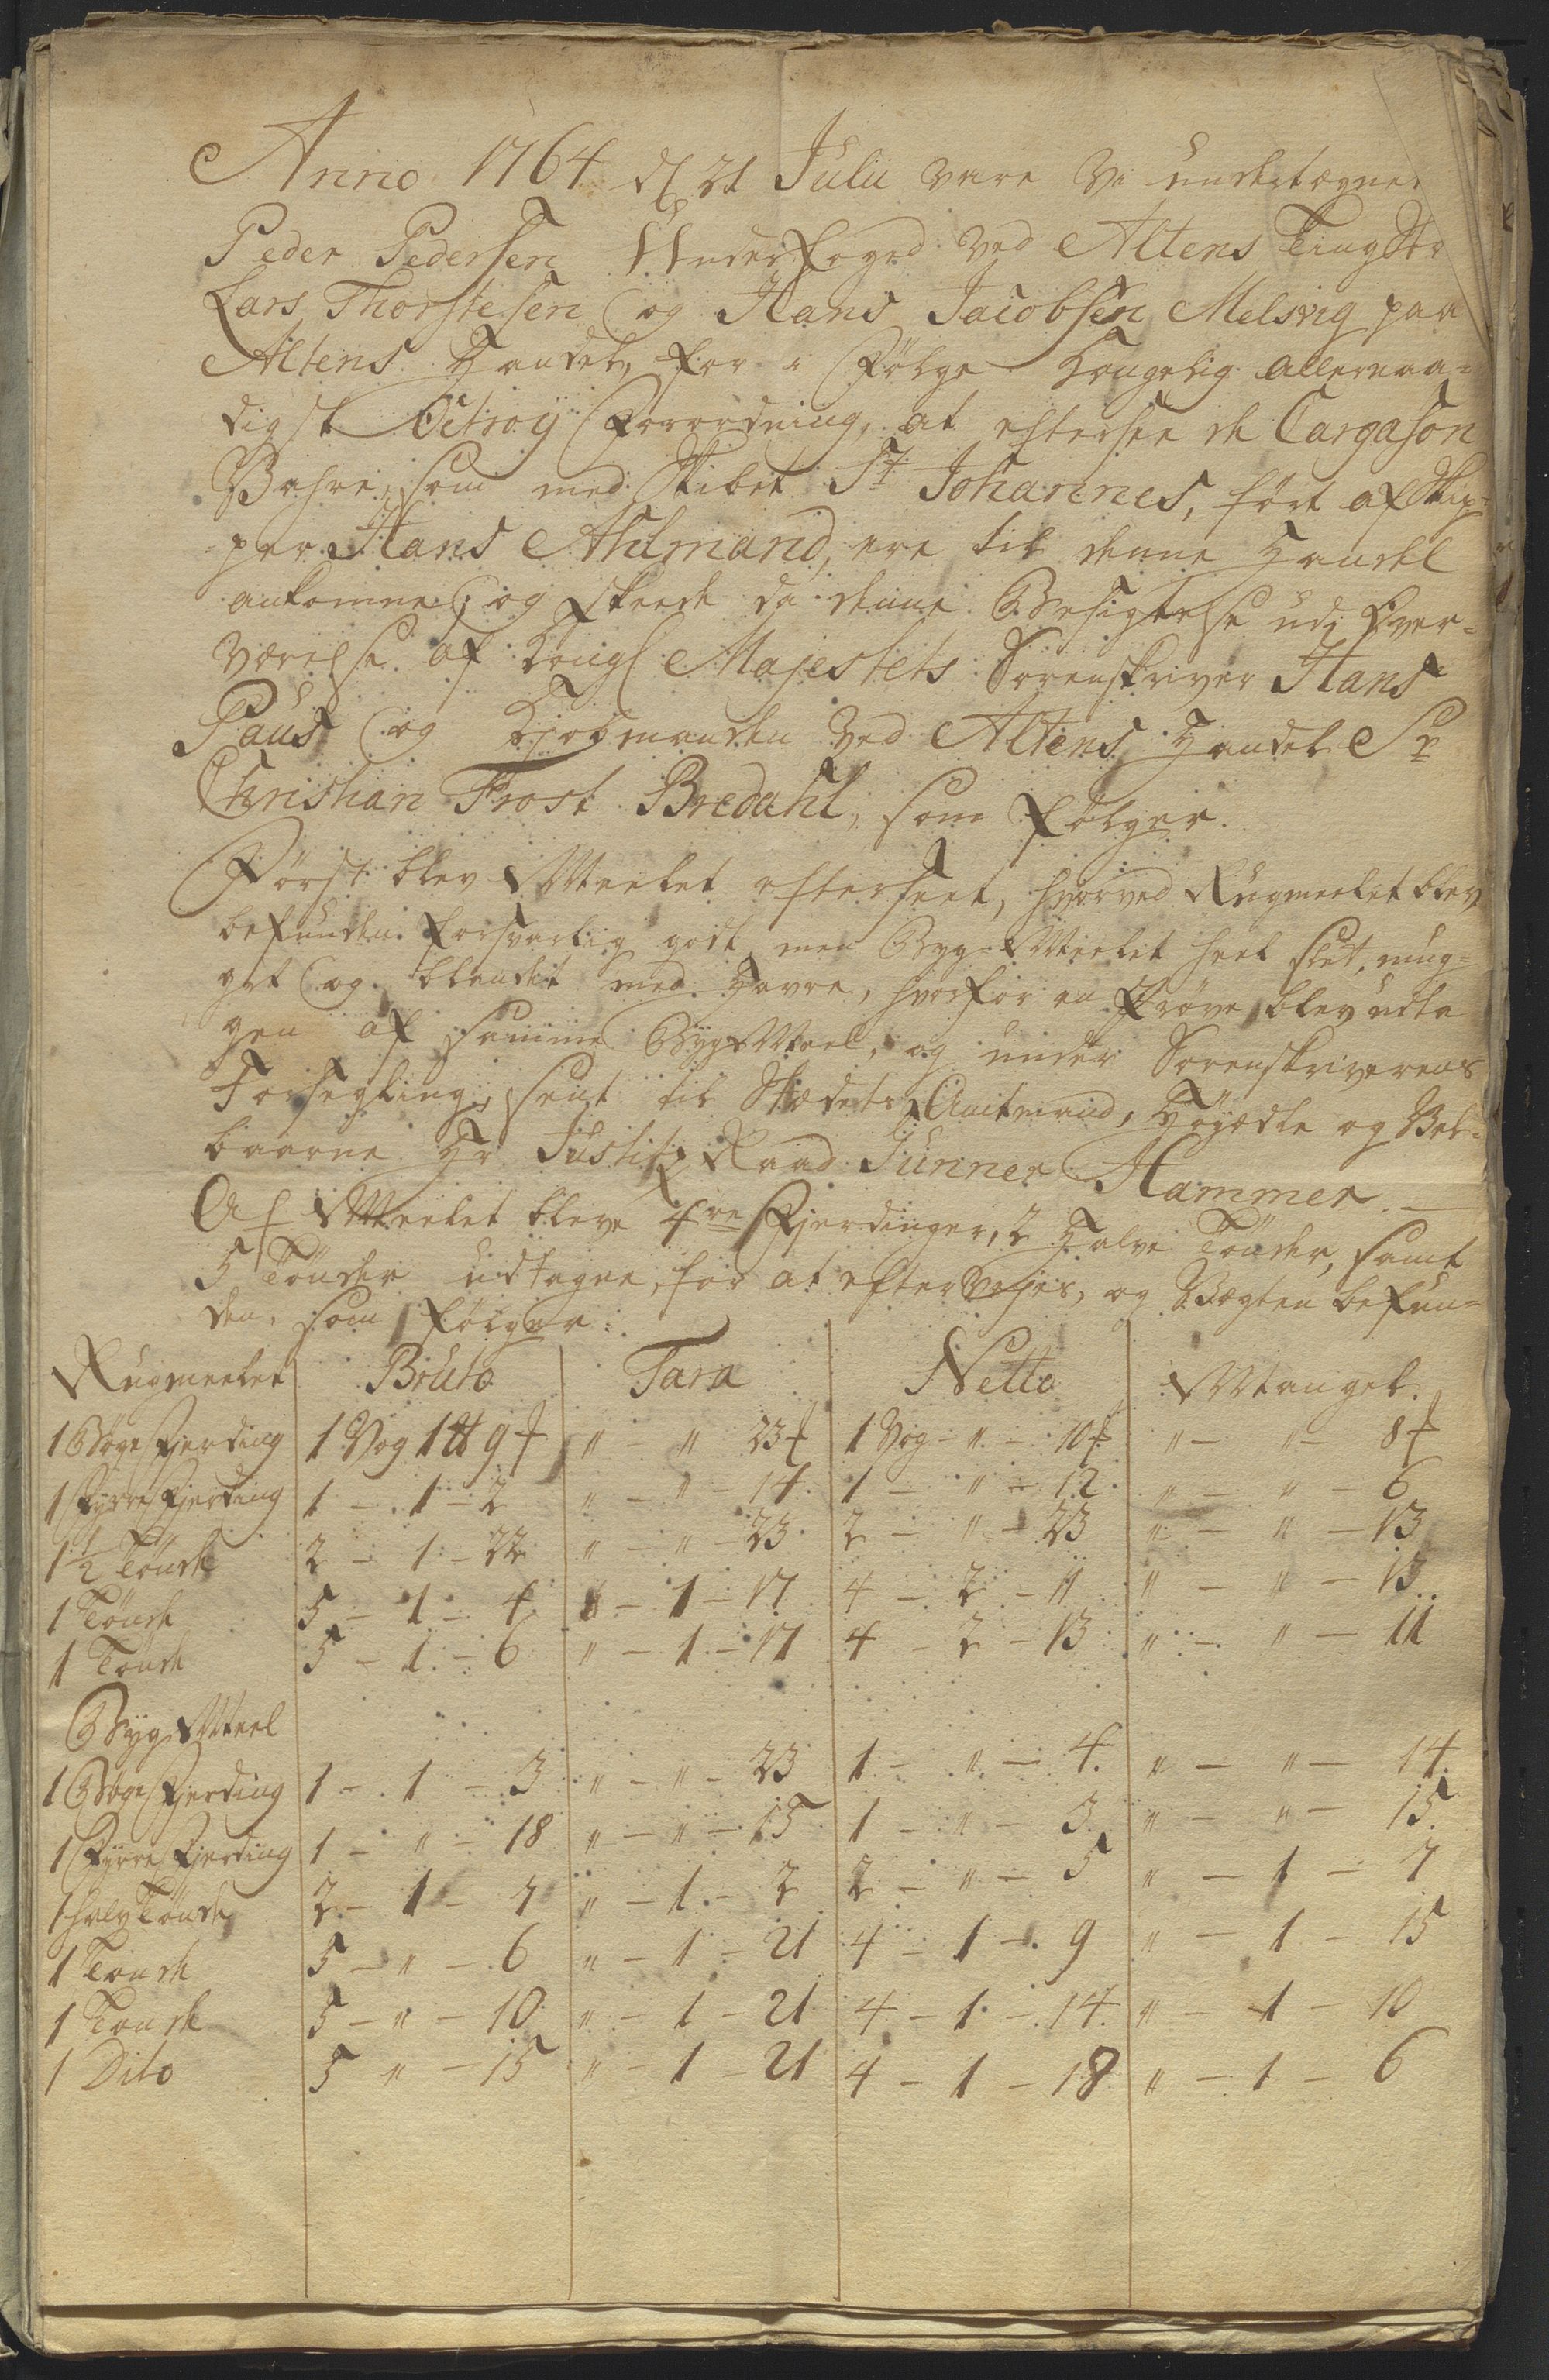 Anno 1764 d 21 Julii vare Vi undertegnede
Peder Pedersen Underfoged ved Altens Tingsted
Lars Thorstesen og Hans Jacobsen Melsvig paa
Altens Handel, for i Følge Kongelig allernaa-
digst Octroy Forordning, at eftersee de Cargason
Vahre, som med Skibet St Johannes, ført af Skip-
per Hans Ahlmand, ere til denne Handel
ankomne; og skeede da denne Besigtelse udi Over-
værelse af Kongl Majestets Sorenskriver Hans
Paus og Kjøbmanden ved Altens Handel Sr
Christian Frost Bredahl, som følger.
Først blev Meelet efterseet, hvorved Rugmeelet blev
befunden forsvarlig godt men Byg-Meelet heel slet, mug-
get og blandet med Havre, hvorfor en Prøve blev udta
gen af samme Byg-Meel, og under Sorenskriverens
Forsegling, sent til Stædets Amtmand, Høyædle og Vel-
baarne Hr Justitz Raad Junner Hammer. —
Af Meelet bleve 4re Fjerdinger, 2 Halve Tønder, samt
5 Tønder udtagne, for at efterveyes, og Vægten befun-
den, som følger:
Rugmeelet Bruto Tara Netto Mangel.
1 Bøge Fjerding 1 Vog 1 ℔ 9 ℔ " - " 23 ℔ 1 Vog - " - 10 ℔ " - " - 8 ℔
1 Fyrre Fjerding 1 - 1 - 2 " - " - 14 1 - " - 12 " - " - 6
1 1/2 Tønde 2 - 1 - 22 " - " - 23 2 - " - 23 " - " - 13
1 Tønde 5 - 1 - 4 " - 1 - 17 4 - 2 - 11 " - " - 13
1 Tønde 5 - 1 - 6 " - 1 - 17 4 - 2 - 13 " - " - 11
Byg-Meel
1 Bøge Fjerding 1 - 1 - 3 " - " - 23 1 - " - 4. " - " - 14.
1 Fyrre Fjerding 1 - " - 18 " - " - 15 1 - " - 3. " - " - 15.
1 halv Tønde 2 - 1 - 7 " - 1 - 2 2 - " - 5 " - 1 - 7
1 Tønde 5 - " - 6 " - 1 - 21 4 - 1 - 9 " - 1 - 15
1 Tønde 5 - " - 10 " - 1 - 21 4 - 1 - 14 " - 1 - 10
1 Dito 5 " - 15 " - 1 - 21 4 - 1 - 18 " - 1 - 6